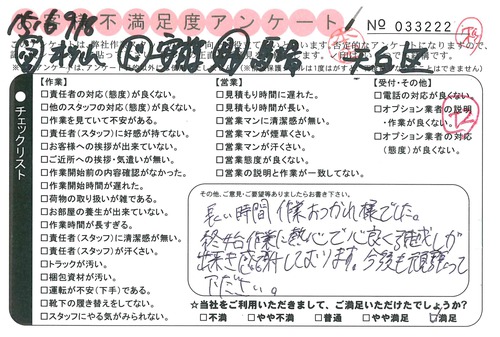 15.6.9/8
お客様不満足度アンケート
No 033222
白区
チェックリスト
【作業】
□責任者の対応(態度)が良くない。
□他のスタッフの対応(態度)が良くない。
□作業を見ていて不安がある。
□責任者(スタッフ)に好感が持てない。
□お客様への挨拶が出来ていない。
□ご近所への挨拶・気遣いが無い。
□作業開始前の内容確認がなかった。
□作業開始時間が遅れた。
□荷物の取り扱いが雑である。
□お部屋の養生が出来ていない。
□作業時間が長すぎる。
□責任者(スタッフ)に清潔感が無い。
□責任者(スタッフ)が汗くさい。
□トラックが汚い。
□梱包資材が汚い。
□運転が不安(下手)である。
□靴下の履き替えをしてない。
□スタッフにやる気がみられない。
【営業】
□見積もり時間に遅れた。
□見積もり時間が長い。
□営業マンに清潔感が無い。
□営業マンが煙草くさい。
□営業マンが汗くさい。
□営業態度が良くない。
□営業の説明と作業が一致してない。
【受付・その他】
□電話の対応が良くない。
□オプション業者の説明
・作業が良くない。
□オプション業者の対応
(態度)が良くない。
その他、ご意見・ご要望等ありましたらお書き下さい。
長い時間作業おつかれ様でした。
終始作業に熱心で心良く引越しが
出来き感謝しております。今後も頑張って
下ださい。
☆当社をご利用いただきまして、ご満足いただけたでしょうか?
□不満 □やや不満 □普通 □やや満足 ☑満足